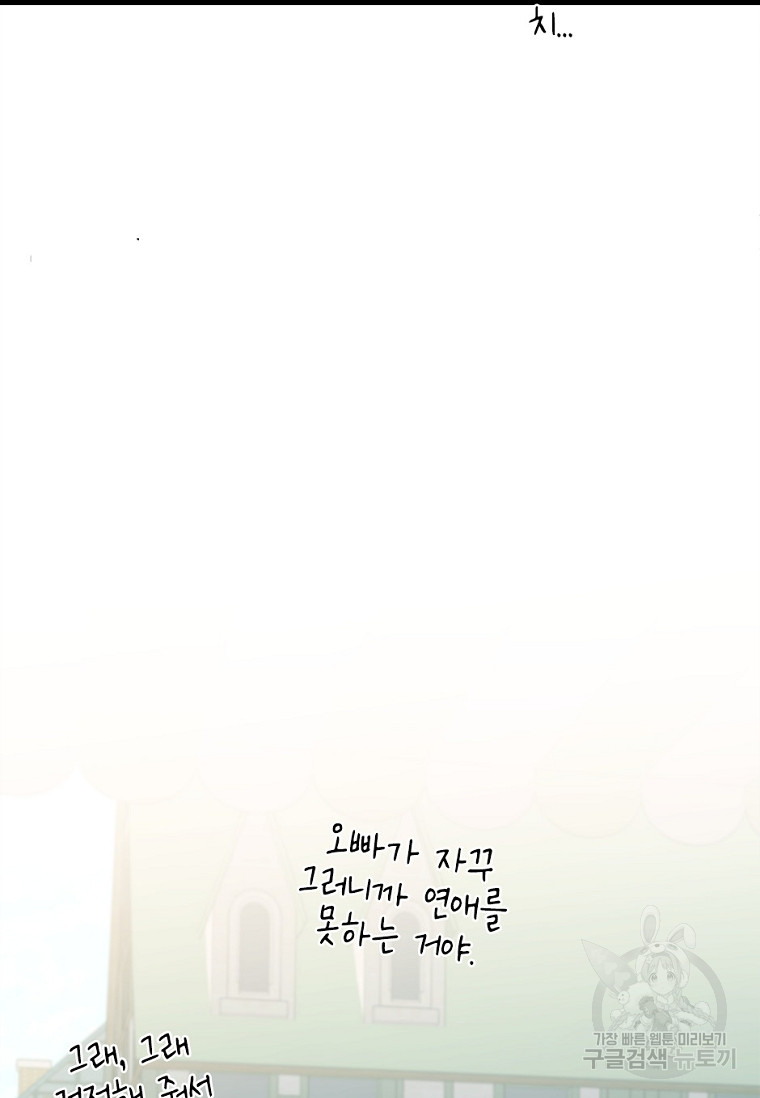 치...
오빠가 자꾸
그러니까 연애를
못하는 거야.
가장 빠른 웹툰 미리보기
구글검색 뉴토끼
그래, 그래
걱정해 줘서